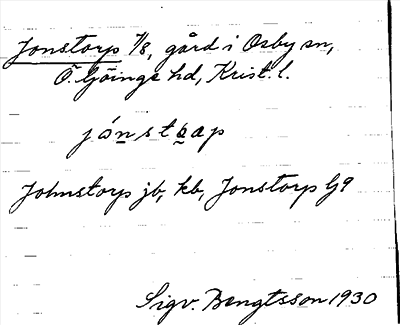 Jonstorp 7/8, gård i Osby sn,
Ö. Göinge hd, Krist. l.
Johnstorp jb, kb, Jonstorp
Sigv. Bengtsson 1930